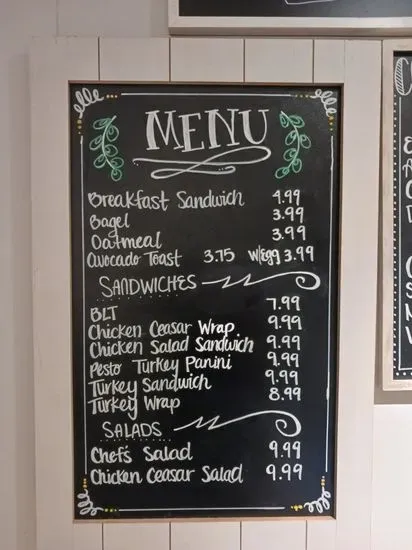 MENU
Breakfast Sandwich 4.99
Bagel 3.99
Oatmeal 3.99
Avocado Toast 3.75 w/egg 3.99
SANDWICHES
BLT 7.99
Chicken Ceasar Wrap 9.99
Chicken Salad Sandwich 9.99
Pesto Turkey Panini 9.99
Turkey Sandwich 9.99
Turkey Wrap 8.99
SALADS
Chef's Salad 9.99
Chicken Ceasar Salad 9.99